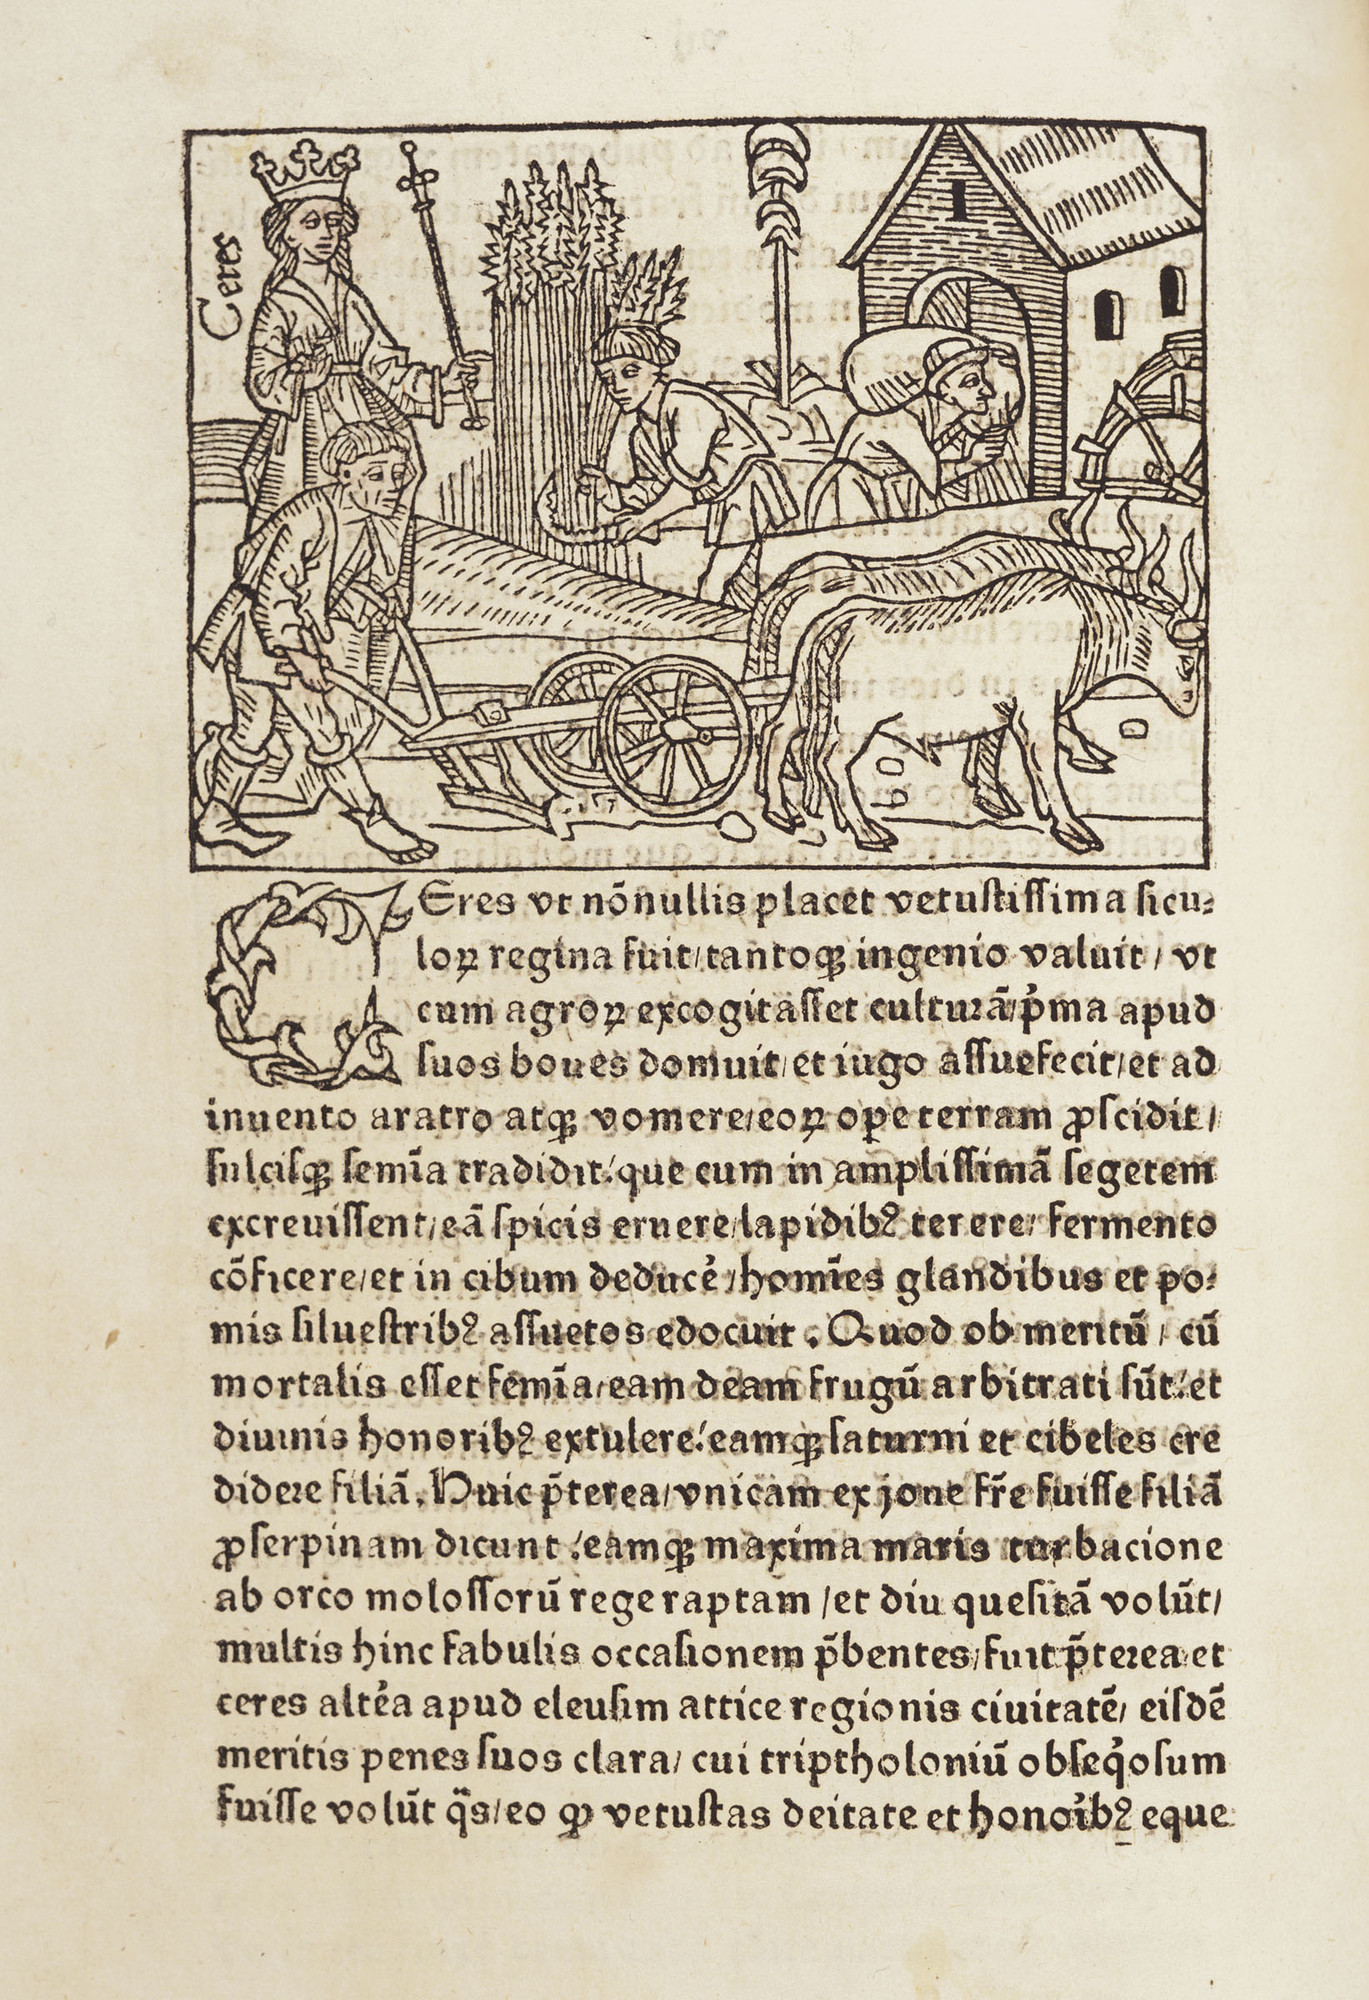 Ceres
CEres vt nõnullis placet vetustissima sicu⸗
loꝝ regina fuit/tantoqꝫ ingenio valuit/ vt
cum agroꝝ excogitasset culturã/p̓ma apud
suos boues domuit/et iugo assuefecit/et ad
inuento aratro atqꝫ vomere/eoꝝ ope terram ꝓscidit/
sulcisqꝫ semĩa tradidit:que cum in amplissimã segetem
excreuissent/eã spicis eruere/lapidibꝰ terere/ fermento
cõficere/et in cibum deduce̓/homĩes glandibus et po⸗
mis siluestribꝰ assuetos edocuit. Quod ob meritũ/ cũ
mortalis esset femĩa/eam deam frugũ arbitrati sũt:et
diuinis honoribꝰ extulere:eamqꝫ saturni et cibeles cre
didere filiã. Huic p̃terea/vnicam ex joue fr̃e fuisse filiã
ꝓserpinam dicunt:eamqꝫ maxima maris turbacione
ab orco molossorũ rege raptam/et diu quesitã volũt/
multis hinc fabulis occasionem p̃bentes/fuit p̃terea et
ceres alte̓a apud eleusim attice regionis ciuitatẽ/ eisdẽ
meritis penes suos clara/ cui triptholoniũ obseq̓osum
fuisse volũt q̃s/eo ꝙ vetustas deitate et hono̓ibꝰ eque